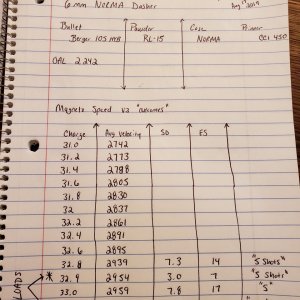 6mm NORMA Dasher Aug 2019
Bullet Powder Case Primer
Berger 105 RL-15 NORMA CCI 450
OAL 2.242
Magneto Speed V3
Charge Avg Velocity SD ES
31.0 2742
31.2 2773
31.4 2788
31.6 2805
31.8 2830
32 2837
32.2 2861
32.4 2891
32.6 2895
32.8 2939 7.3 14 "5 Shots"
* 32.9 2954 3.0 7 "5 Shots"
33.0 2959 7.8 17 "5
LOADS